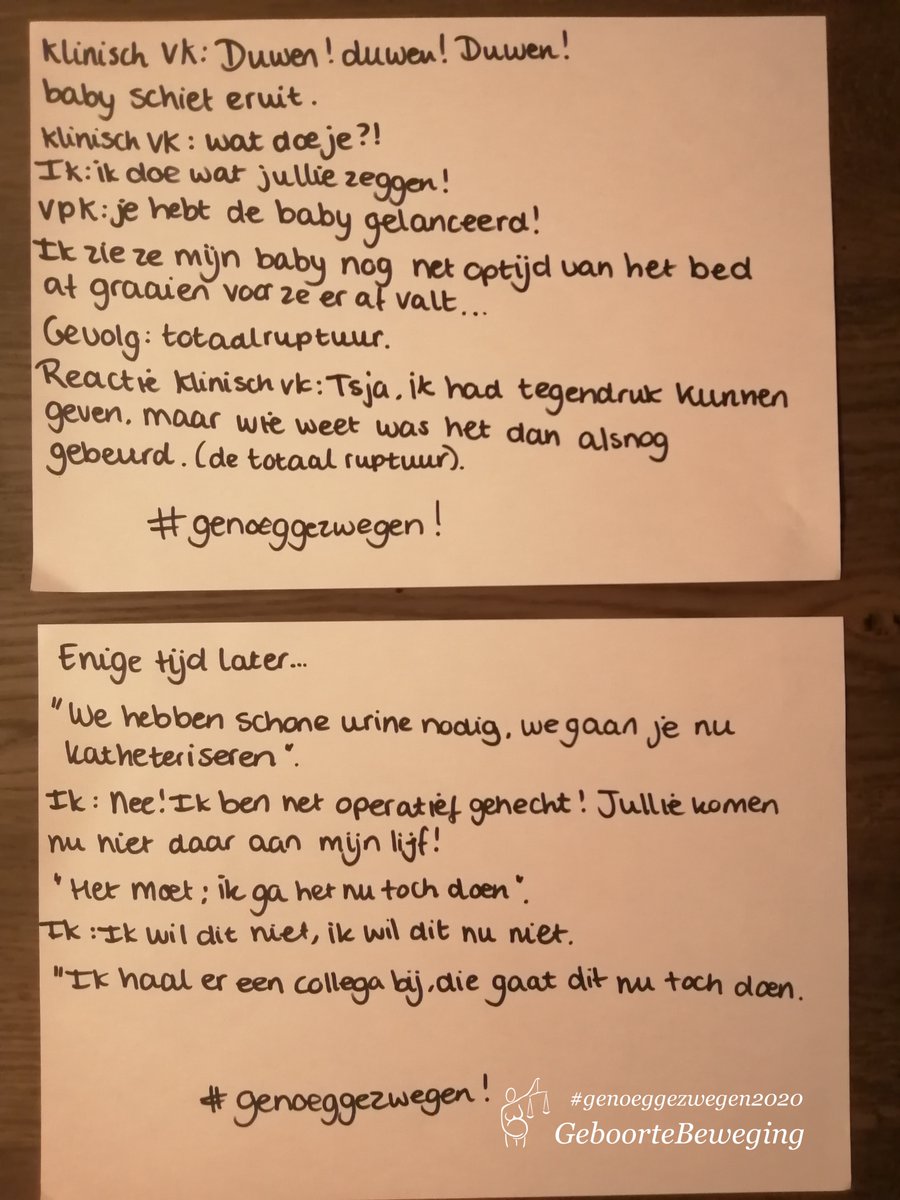 Klinisch VK: Duwen! duwen! Duwen!
baby schiet eruit.
klinisch VK: wat doe je?!
Ik: ik doe wat jullie zeggen!
VPK: je hebt de baby gelanceerd!
Ik zie ze mijn baby nog net optijd van het bed
af graaien voor ze er af valt...
Gevolg: totaalruptuur.
Reactie klinisch vk: Tsja, ik had tegendruk kunnen
geven, maar wie weet was het dan alsnog
gebeurd. (de totaal ruptuur).
#genoeggezwegen!
Enige tijd later...
"We hebben schone urine nodig, we gaan je nu
katheteriseren".
Ik: Nee! Ik ben net operatief gehecht! Jullie komen
nu niet daar aan mijn lijf!
"Het moet; ik ga het nu toch doen".
Ik: Ik wil dit niet, ik wil dit nu niet.
"Ik haal er een collega bij, die gaat dit nu toch doen.
#genoeggezwegen!
#genoeggezwegen2020
GeboorteBeweging